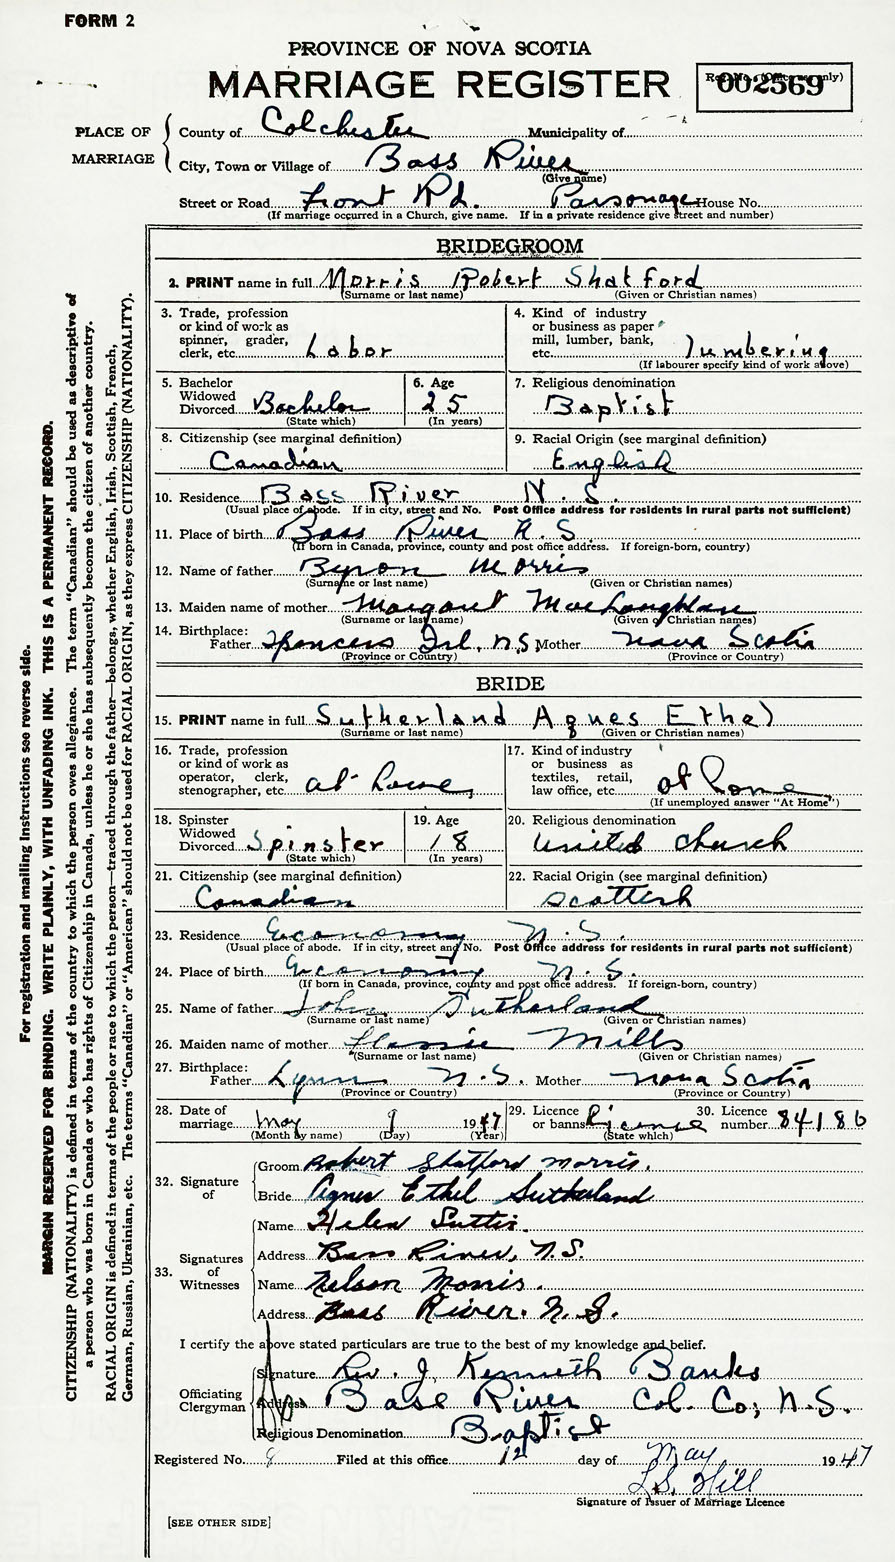 FORM 2
PROVINCE OF NOVA SCOTIA
MARRIAGE REGISTER
Reg. No. (Office use only)
002569
PLACE OF MARRIAGE
County of Colchester Municipality of
City, Town or Village of Bass River
(Give name)
Street or Road Front Rd. Parsonage House No.
(If marriage occurred in a Church, give name. If in a private residence give street and number)
BRIDEGROOM
2. PRINT name in full Morris Robert Shatford
(Surname or last name) (Given or Christian names)
3. Trade, profession or kind of work as spinner, grader, clerk, etc. Labor
4. Kind of industry or business as paper mill, lumber, bank, etc. lumbering
(If labourer specify kind of work above)
5. Bachelor Widowed Divorced Bachelor
(State which)
6. Age 25
(In years)
7. Religious denomination Baptist
8. Citizenship (see marginal definition) Canadian
9. Racial Origin (see marginal definition) English
10. Residence Bass River N.S.
(Usual place of abode. If in city, street and No. Post Office address for residents in rural parts not sufficient)
11. Place of birth Bass River N.S.
(If born in Canada, province, county and post office address. If foreign-born, country)
12. Name of father Byron Morris
(Surname or last name) (Given or Christian names)
13. Maiden name of mother Margaret
(Surname or last name) (Given or Christian names)
14. Birthplace:
Father Isl, N.S, Mother Nova Scotia
(Province or Country) (Province or Country)
BRIDE
15. PRINT name in full Sutherland Agnes Ethel
(Surname or last name) (Given or Christian names)
16. Trade, profession or kind of work as operator, clerk, stenographer, etc. at home
17. Kind of industry or business as textiles, retail, law office, etc. at home
(If unemployed answer "At Home")
18. Spinster Widowed Divorced Spinster
(State which)
19. Age 18
(In years)
20. Religious denomination United Church
21. Citizenship (see marginal definition) Canadian
22. Racial Origin (see marginal definition) Scottish
23. Residence Economy N.S.
(Usual place of abode. If in city, street and No. Post Office address for residents in rural parts not sufficient)
24. Place of birth Economy N.S.
(If born in Canada, province, county and post office address. If foreign-born, country)
25. Name of father John Sutherland
(Surname or last name) (Given or Christian names)
26. Maiden name of mother Mills
(Surname or last name) (Given or Christian names)
27. Birthplace:
Father Lynn N.S. Mother Nova Scotia
(Province or Country) (Province or Country)
28. Date of marriage May 9 1947
(Month by name) (Day) (Year)
29. Licence or banns License
(State which)
30. Licence number 84186
32. Signature of
Groom Robert Shatford Morris.
Bride Agnes Ethel Sutherland
33. Signatures of Witnesses
Name Helen
Address Bass River, N.S.
Name Nelson Morris.
Address Bass River. N.S.
I certify the above stated particulars are true to the best of my knowledge and belief.
Officiating Clergyman
Signature Rev. J. Kenneth Banks
Address Bass River Col. Co; N.S.
Religious Denomination Baptist
Registered No. 8 Filed at this office 12 day of May 1947
L.S. Hill
Signature of Issuer of Marriage Licence
[SEE OTHER SIDE]
For registration and mailing instructions see reverse side.
MARGIN RESERVED FOR BINDING. WRITE PLAINLY, WITH UNFADING INK. THIS IS A PERMANENT RECORD.
CITIZENSHIP (NATIONALITY) is defined in terms of the country to which the person owes allegiance. The term "Canadian" should be used as descriptive of
a person who was born in Canada or who has rights of Citizenship in Canada, unless he or she has subsequently become the citizen of another country.
RACIAL ORIGIN is defined in terms of the people or race to which the person—traced through the father—belongs, whether English, Irish, Scottish, French,
German, Russian, Ukrainian, etc. The terms "Canadian" or "American" should not be used for RACIAL ORIGIN, as they express CITIZENSHIP (NATIONALITY).